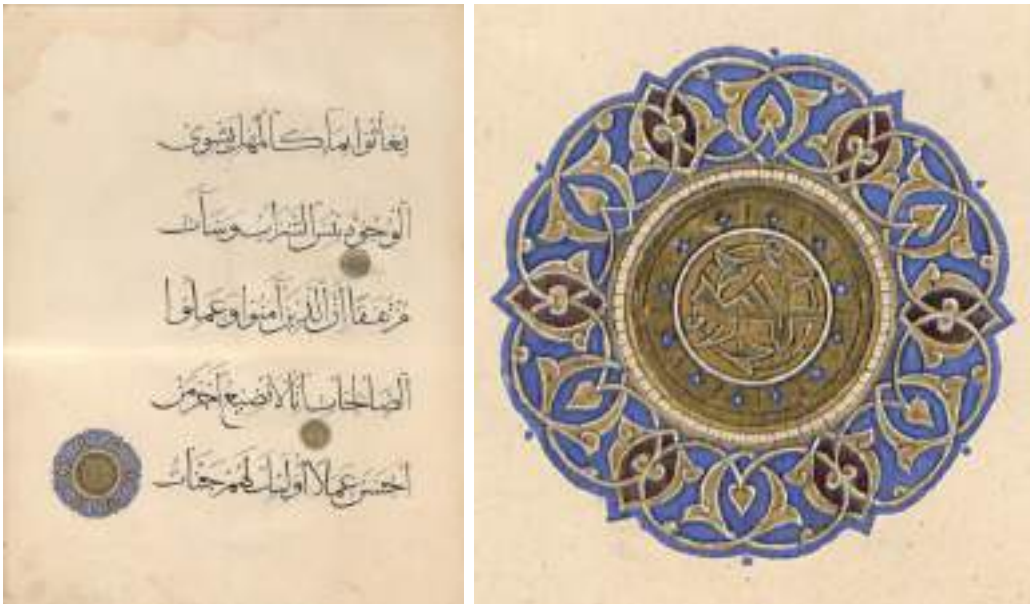 يغاثوا بماء كالمهل يشوى
الوجوه بئس الشراب وساءت
مرتفقا ان الذين آمنوا وعملوا
الصالحات انا لا نضيع اجر من
احسن عملا اولئك لهم جنات